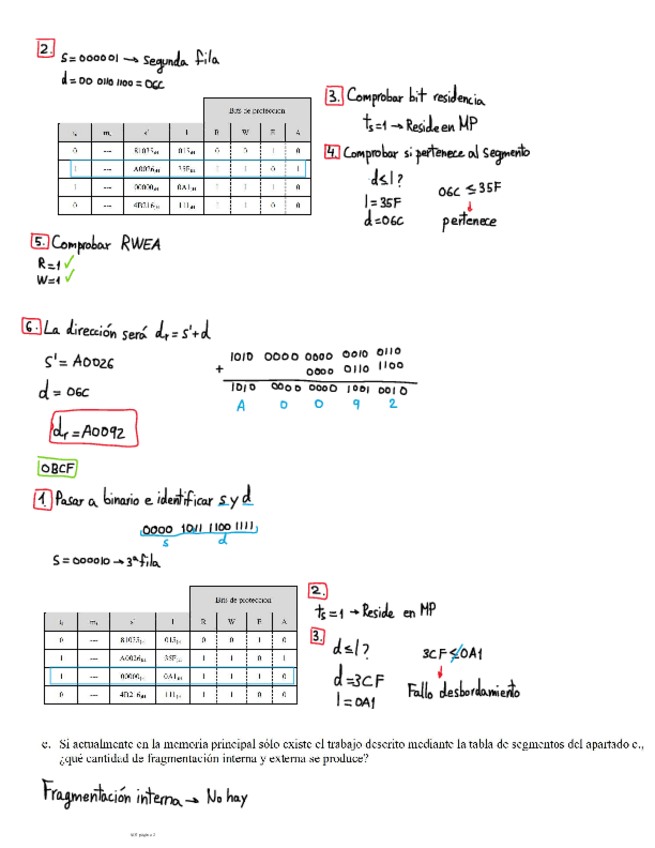 2. S=000001 → Segunda fila
d=00 0110 1100=06C
Bits de protección
ts ms s' l R W E A
0 --- 81035 015 0 0 1 0
1 --- A0026 35F 1 1 0 1
1 --- 00000 0A1 1 1 1 0
0 --- 4B216 111 1 1 0 0
3. Comprobar bit residencia
ts=1 → Reside en MP
4. Comprobar si pertenece al segmento
d≤l?
l=35F
d=06C
06C ≤ 35F
↓
pertenece
5. Comprobar RWEA
R=1 ✓
W=1 ✓
6. La dirección será dr = s'+d
s'= A0026
d = 06C
dr=A0092
1010 0000 0000 0010 0110
+ 0000 0110 1100
1010 0000 0000 1001 0010
A 0 0 9 2
0BCF
1. Pasar a binario e identificar s y d
0000 1011 1100 1111
s d
S=000010 → 3ª fila
Bits de protección
ts ms s' l R W E A
0 --- 81035 015 0 0 1 0
1 --- A0026 35F 1 1 0 1
1 --- 00000 0A1 1 1 1 0
0 --- 4B216 111 1 1 0 0
2.
ts=1 → Reside en MP
3.
d≤l?
d=3CF
l=0A1
3CF ≰ 0A1
↓
Fallo desbordamiento
e. Si actualmente en la memoria principal sólo existe el trabajo descrito mediante la tabla de segmentos del apartado c.,
¿qué cantidad de fragmentación interna y externa se produce?
Fragmentación interna → No hay